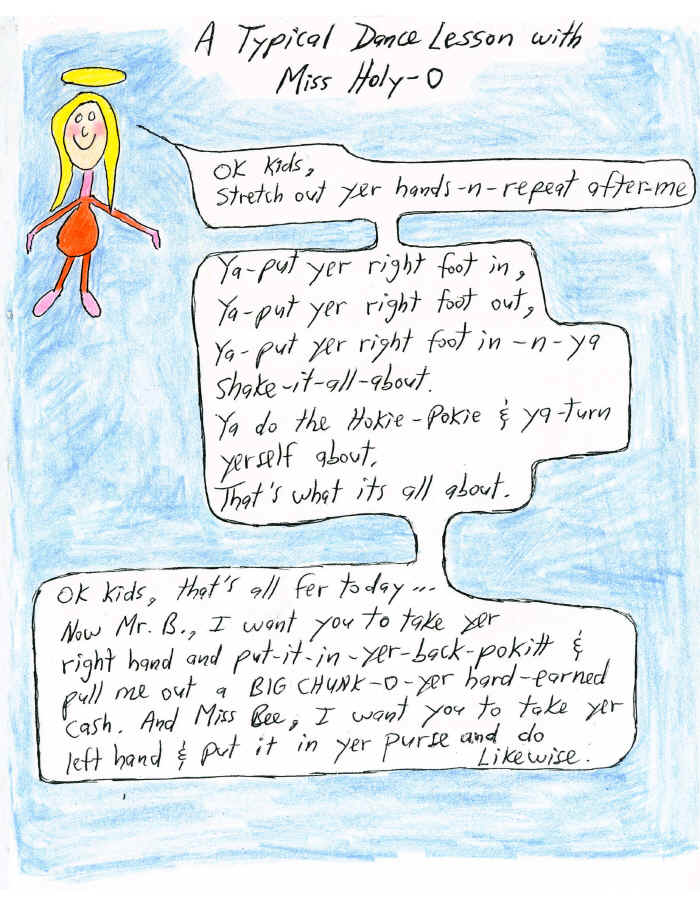 A Typical Dance Lesson with
Miss Holy-O
OK Kids,
Stretch out yer hands-n-repeat after-me
Ya-put yer right foot in,
Ya-put yer right foot out,
Ya-put yer right foot in-n-ya
shake-it-all-about.
Ya do the Hokie-Pokie & ya-turn
yerself about.
That's what its all about.
OK Kids, that's all fer today...
Now Mr. B., I want you to take yer
right hand and put-it-in-yer-back-pokitt &
pull me out a BIG CHUNK-O-yer hard-earned
cash. And Miss Bee, I want you to take yer
left hand & put it in yer purse and do
Likewise.